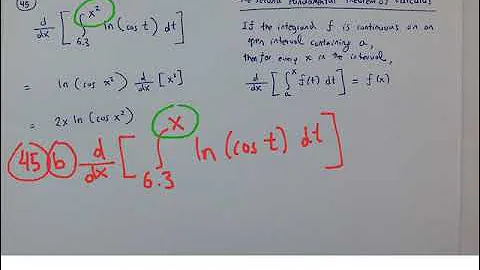 45
d/dx [ ∫_{6.3}^{x²} ln(cos t) dt ]
= ln(cos x²) d/dx [x²]
= 2x ln(cos x²)
The Second Fundamental Theorem of Calculus
If the integrand f is continuous on an
open interval containing a,
then for every x in the interval,
d/dx [ ∫_a^x f(t) dt ] = f(x)
45 b d/dx [ ∫_{6.3}^{x} ln(cos t) dt ]